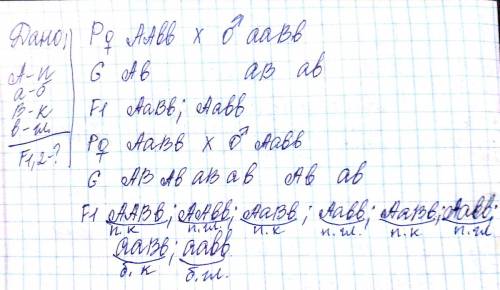 Дано:
А-п
а-б
В-к
в-гл.
F1,2-?
P♀ ААвв х ♂ ааВв
G Ав аВ ав
F1 АаВв; Аавв
P♀ АаВв х ♂ Аавв
G АВ Ав аВ ав Ав ав
F1 ААВв; ААвв; АаВв; Аавв; АаВв; Аавв;
п.к п.гл. п.к п.гл. п.к п.гл.
ааВв; аавв
б.к б.гл.